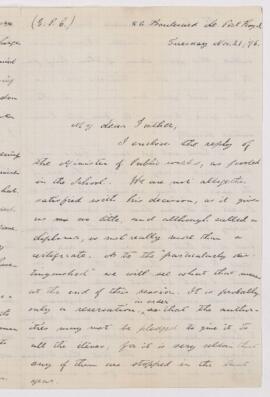 (E.P.C.)
44 Boulevard de Port Royal
Tuesday Nov. 21, 76.
My dear Father,
I enclose the reply
of the Minister of Public works, as posted
in the School. We are not altogether
satisfied with his decision, as it gives
us no title, and although called a
diploma, is not really more than a
certificate. As to the "particularly dis-
tinguished" we will see what that means
at the end of the session. It is probably
only a reservation, in order that the author-
ities may not be pledged to give it to
all the élèves, for it is very seldom that
any of them are stopped in the
year.